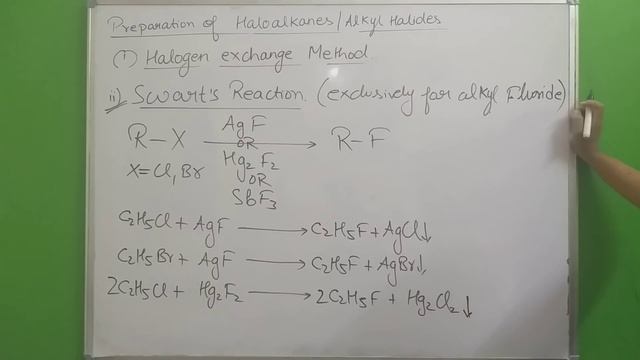 Preparation of Haloalkanes/Alkyl Halides
(1) Halogen exchange Method
ii) Swart's Reaction. (exclusively for alkyl Fluoride)
R-X AgF → R-F
OR
X=Cl, Br Hg2F2
OR
SbF3
C2H5Cl + AgF → C2H5F + AgCl↓
C2H5Br + AgF → C2H5F + AgBr↓
2C2H5Cl + Hg2F2 → 2C2H5F + Hg2Cl2↓